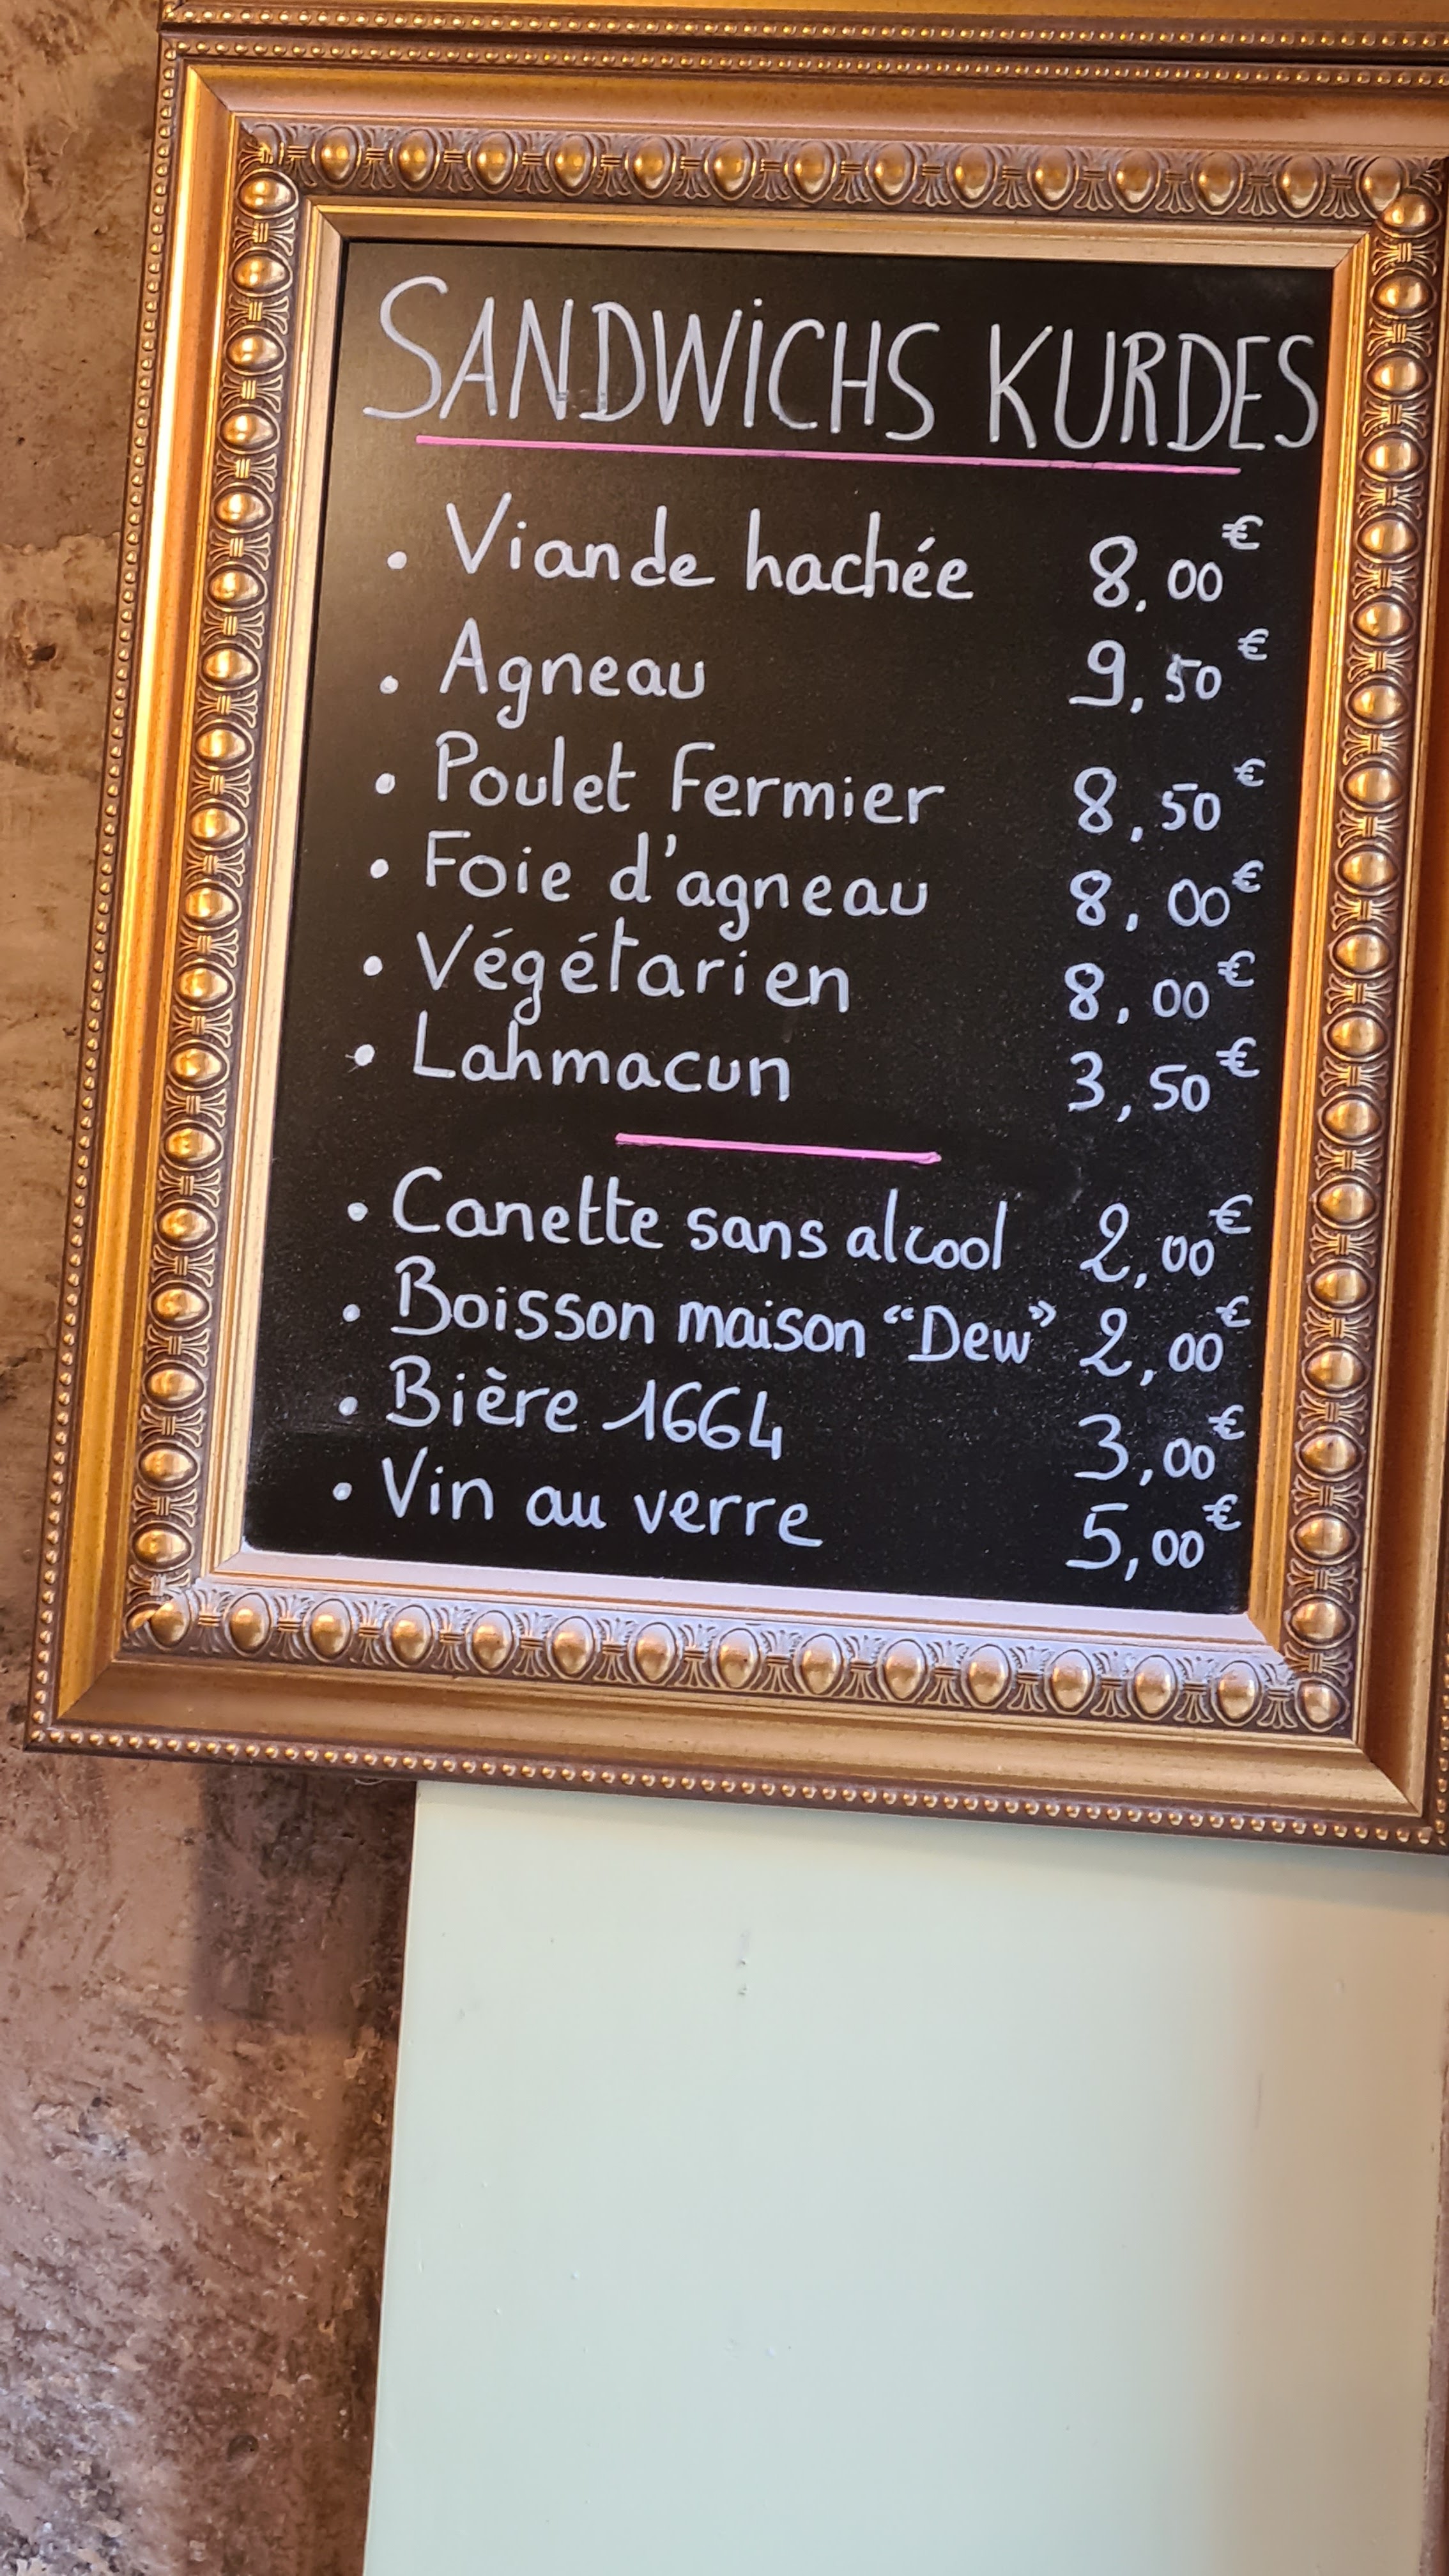 SANDWiCHS KURDES
• Viande hachée 8,00€
• Agneau 9,50€
• Poulet Fermier 8,50€
• Foie d'agneau 8,00€
• Végétarien 8,00€
• Lahmacun 3,50€
• Canette sans alcool 2,00€
• Boisson maison “Dew” 2,00€
• Bière 1664 3,00€
• Vin au verre 5,00€